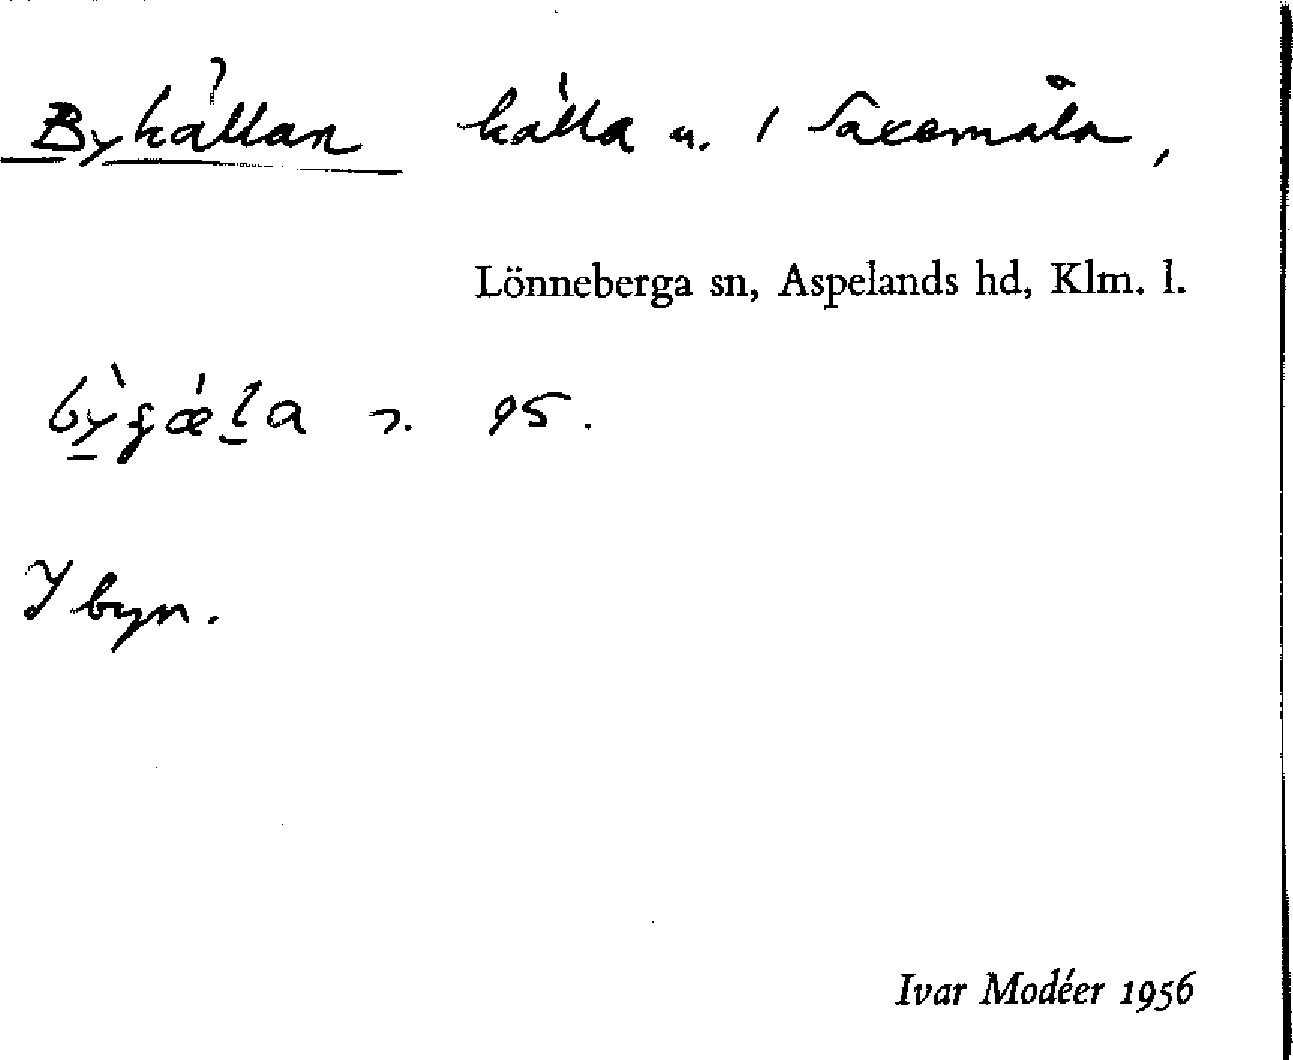 Bykällan källa u. / Saxemåla,
Lönneberga sn, Aspelands hd, Klm. l.
95.
I byn.
Ivar Modéer 1956